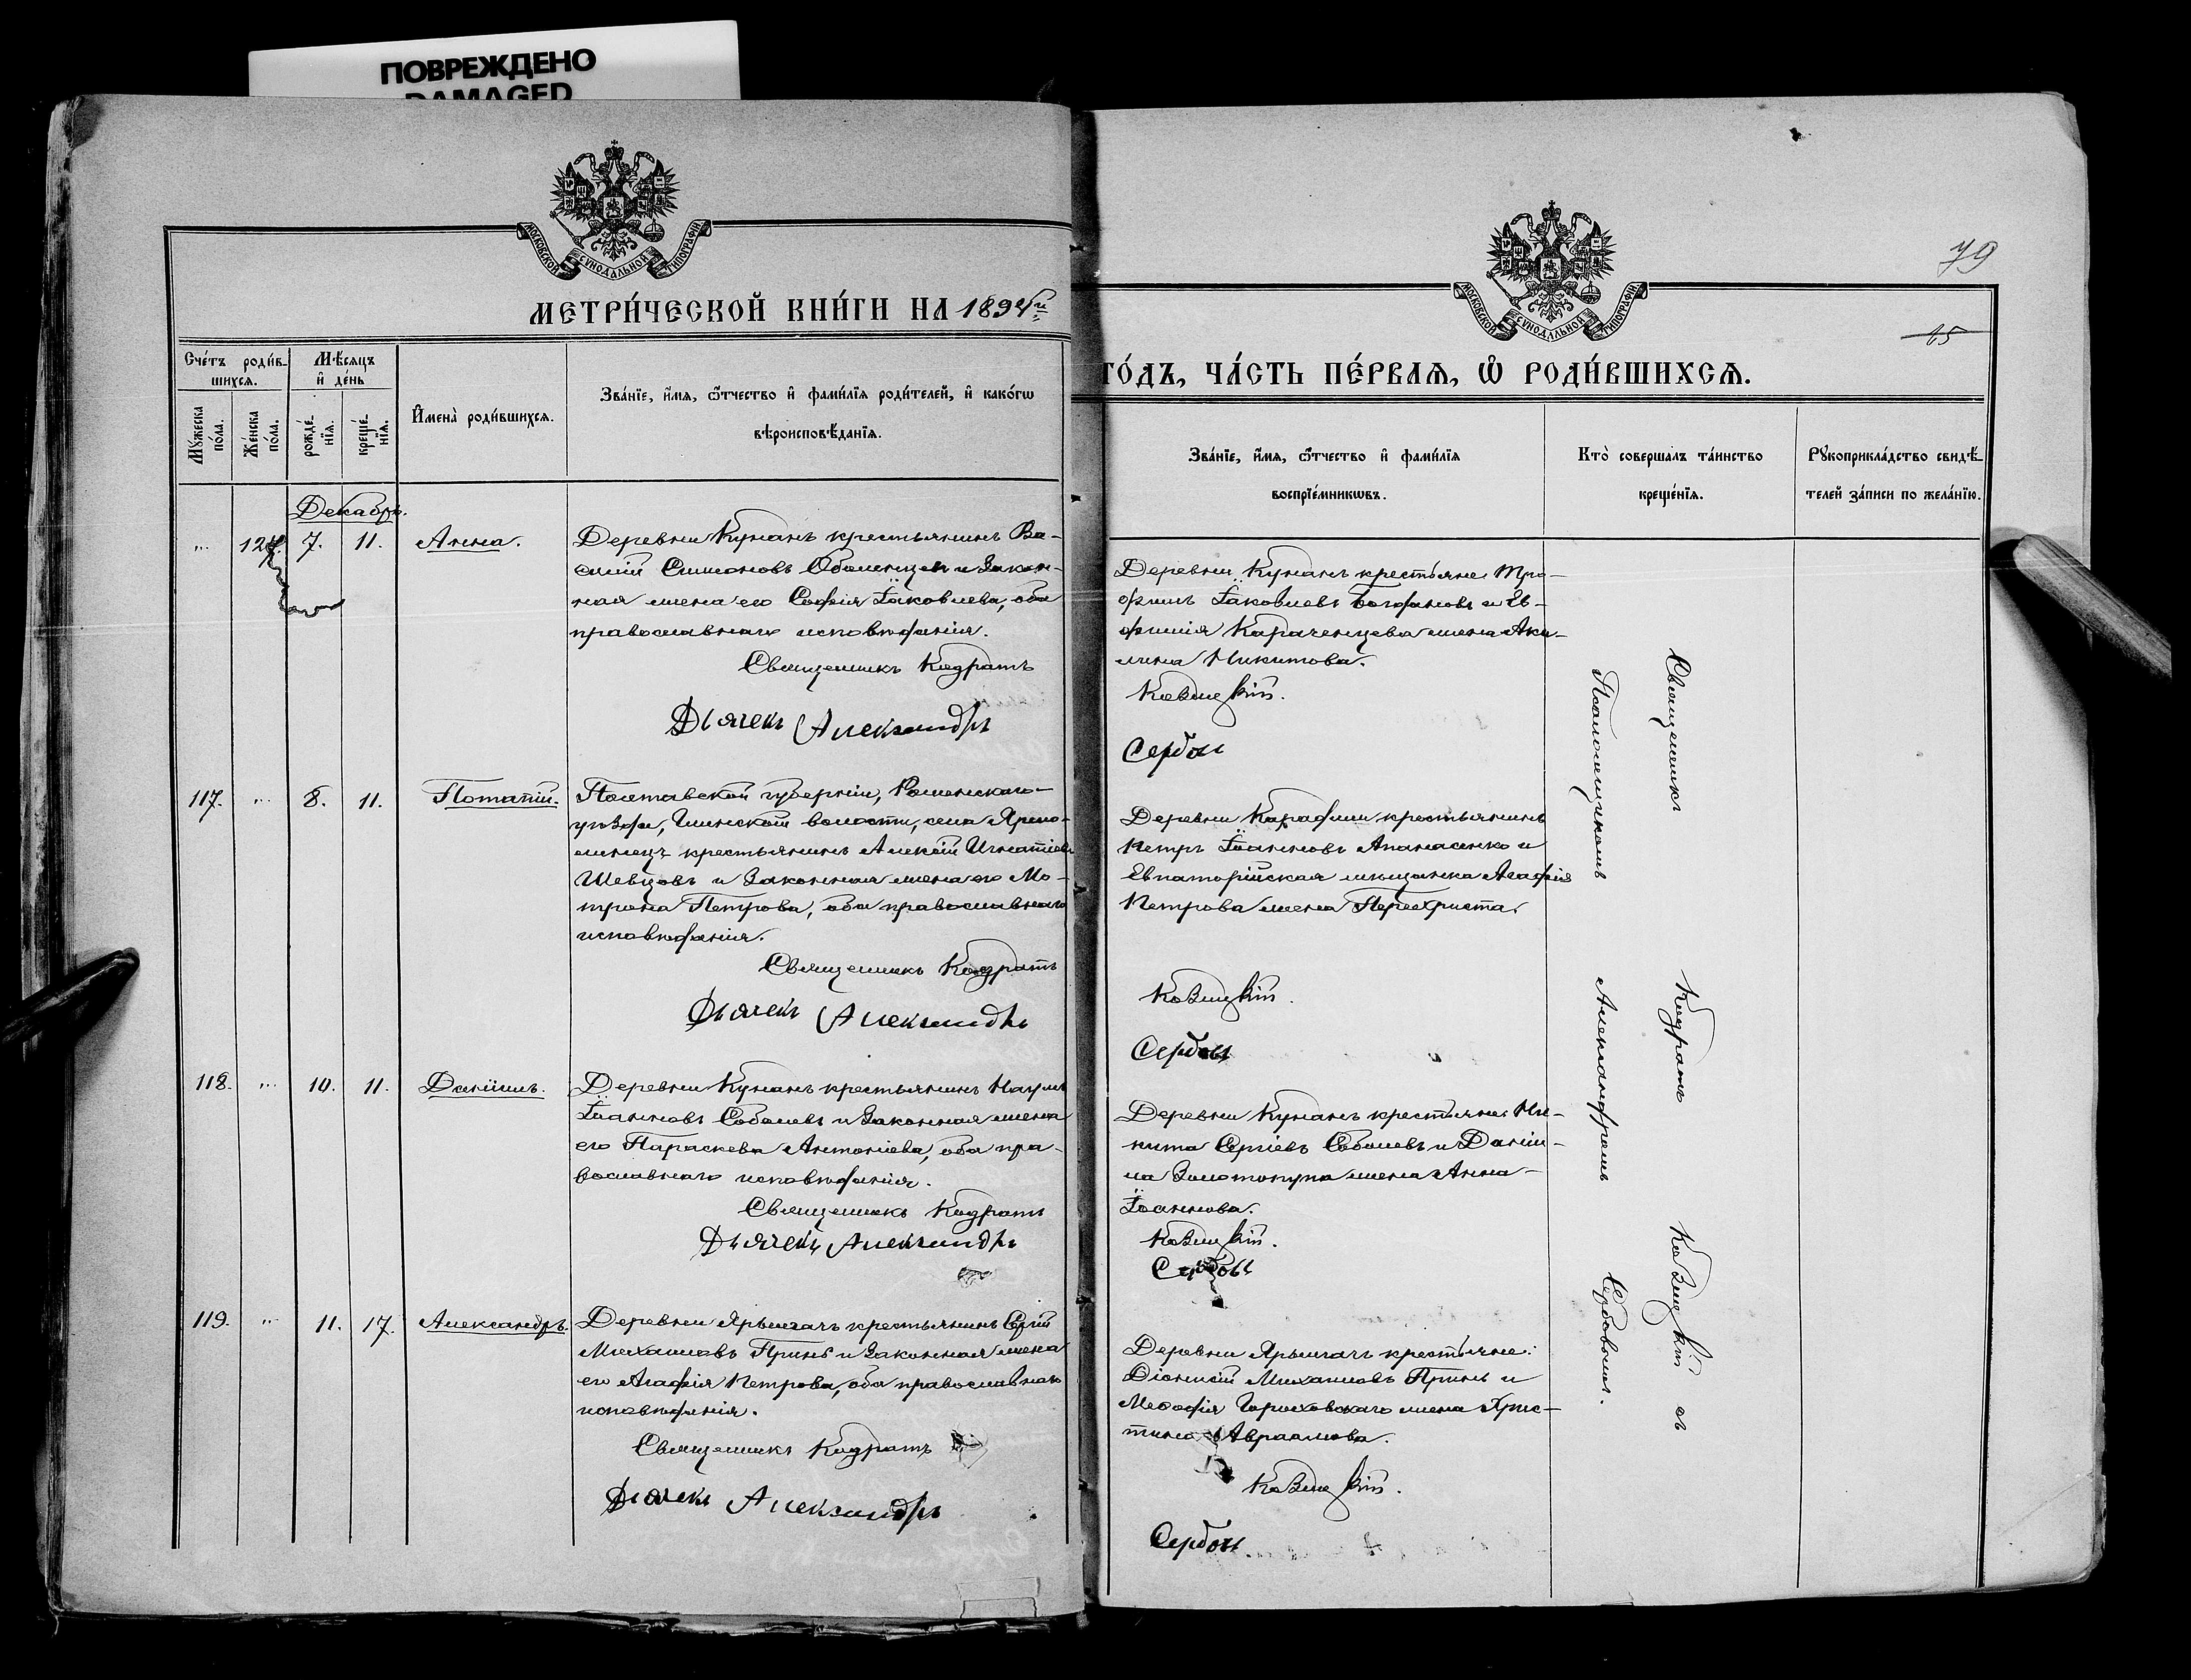 ПОВРЕЖДЕНО
DAMAGED
МОСКОВСКОЙ СѴНОДАЛЬНОЙ ТИПОГРАФІИ
МЕТРИ́ЧЕСКОЙ КНИ́ГИ НА 1894й
Сче́тъ роди́в-
шихся.
Мѣ́сяцъ
и҆ де́нь
Мꙋжеска
по́ла.
Же́нска
по́ла.
рожде́-
нїѧ.
креще́-
нїѧ.
И҆мена̀ роди́вшихсѧ.
Зва́нїе, и҆́мѧ, ѻ҆́тчество и҆ фами́лїѧ роди́телей, и҆ како́гѡ
вѣроисповѣ́данїѧ.
Декабрь.
„ 124. 7. 11. Анна.
Деревни Кунанъ крестьянинъ Ва-
силій Симеоновъ Оболенцевъ и Закон-
ная жена его Софія Іаковлева, оба
православнаго исповѣданія.
Священникъ Кодратъ
Дьячекъ Александръ
117. „ 8. 11. Потапій.
Полтавской губерніи, Роменскаго
уѣзда, Глинской волости, села Ярмо-
линецъ крестьянинъ Алексій Игнатіевъ
Шевцовъ и Законная жена его Мо-
трона Петрова, оба православнаго
исповѣданія.
Священникъ Кодратъ
Дьячекъ Александръ
118. „ 10. 11. Даніилъ.
Деревни Кунанъ крестьянинъ Наумъ
Іоанновъ Соболевъ и Законная жена
его Параскева Антоніева, оба пра-
вославнаго исповѣданія.
Священникъ Кодратъ
Дьячекъ Александръ
119. „ 11. 17. Александръ.
Деревни Ярылгачъ крестьянинъ Сергій
Михаиловъ Принь и Законная жена
его Агафія Петрова, оба православнаго
исповѣданія.
Священникъ Кодратъ
Дьячекъ Александръ
79
15
МОСКОВСКОЙ СѴНОДАЛЬНОЙ ТИПОГРАФІИ
ГО́ДЪ, ЧА́СТЬ ПЕ́РВАЯ, Ѡ҆ РОДИ́ВШИХСЯ.
Зва́нїе, и҆́мѧ, ѻ҆́тчество и҆ фами́лїѧ
воспрїе́мникѡвъ.
Кто̀ соверша́лъ та́инство
креще́нїѧ.
Рꙋкоприкла́дство свидѣ́-
телей за́писи по жела́нїю.
Деревни Кунанъ крестьяне: Тро-
фимъ Іаковлевъ Богдановъ и Ев-
фимія Караченцева жена Аки-
лина Никитова.
Козицкій.
Сербовъ
Деревни Караджи крестьянинъ
Петръ Іоанновъ Апанасенко и
Евпаторійская мѣщанка Агафія
Петрова жена Перехриста.
Козицкій.
Сербовъ
Деревни Кунанъ крестьяне: Ни-
кита Сергіевъ Соболевъ и Даніи-
ла Золотопупа жена Анна
Іоаннова.
Козицкій.
Сербовъ
Деревни Ярылгачъ крестьяне:
Діонисій Михаиловъ Принь и
Меѳодія Гороховскаго жена Хрис-
тина Авраамова.
Козицкій.
Сербовъ
Священникъ Кодратъ Козицкій съ
Псаломщикомъ Александромъ Сербовымъ.